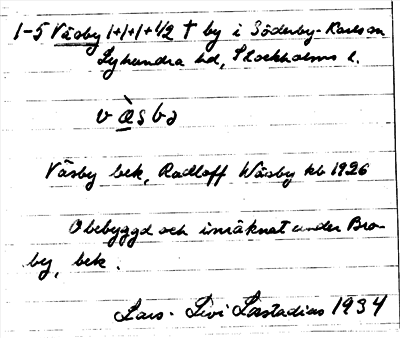 1-5 Väsby 1+1+1+1/2 † by i Söderby-Karlson
Lyhundra hd, Stockholms l.
v æ̀ s b ə
Väsby bek, Radloff Wäsby kb 1926
Obebyggd och inräknat under Bro-
by, bek.
Lars-Levi Læstadius 1934